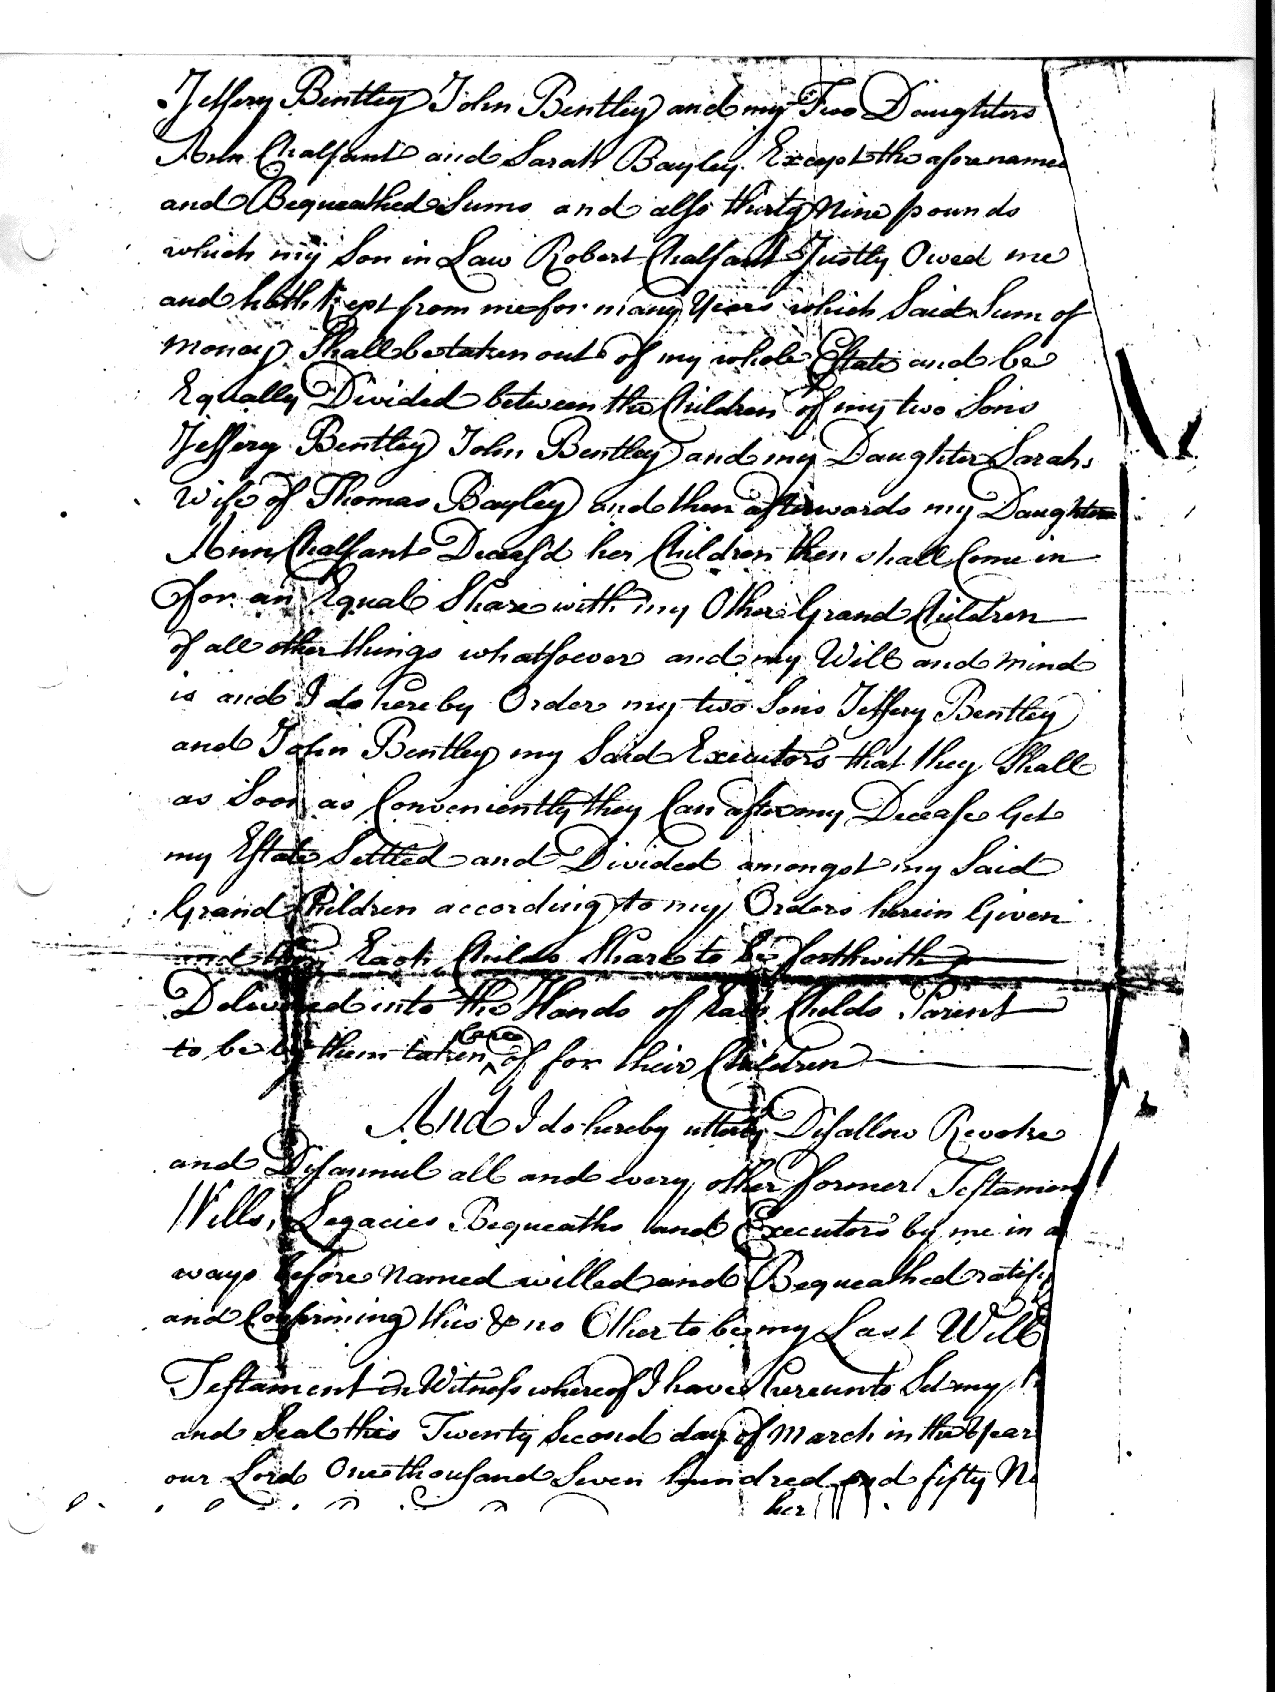 Jeffery Bentley John Bentley and my Two Daughters
Ann Chalfant and Sarah Bayley Except the aforename
and Bequeathed Sums and also thirty Nine pounds
which my Son in Law Robert Chalfant Justly Owed me
and hath Kept from me for many Years which Said Sum of
Money Shall be taken out of my whole Estate and be
Equally Divided between the Children of my two Sons
Jeffery Bentley John Bentley and my Daughter Sarah
Wife of Thomas Bayley and then afterwards my Daughters
Ann Chalfant Deceas'd her Children then shall Come in
for an Equal Share with my Other Grand Children
of all other things whatsoever and my Will and mind
is and I do hereby Order my two Sons Jeffery Bentley
and John Bentley my Said Executors that they Shall
as Soon as Conveniently they Can after my Decease Get
my Estate Settled and Divided amongst my Said
Grand Children according to my Orders herein Given
and then Each Childs Share to be forthwith
Delivered into the Hands of Each Childs Parent
to be by them taken care of for their Children
And I do hereby utterly Disallow Revoke
and Disannul all and every other former Testamen
Wills, Legacies Bequeaths and Executors by me in a
ways before Named willed and Bequeathed ratify
and Confirming this & no Other to be my Last Will
Testament In Witness whereof I have hereunto Set my
and Seal this Twenty Second day of March in the Year
our Lord One thousand Seven hundred and fifty Ni
her